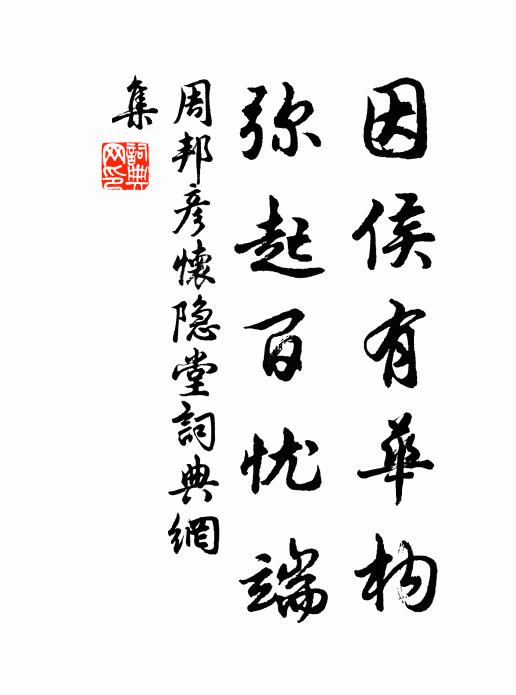 因侯有華构
弥起百忧端
周邦彦懷隐堂詞典網
集
詞典
网印